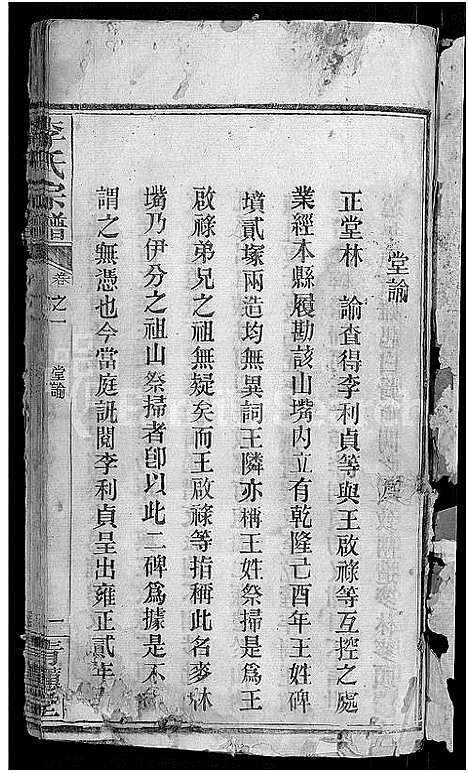 堂諭
正堂林　諭查得李利貞等與王啟祿等互控之處
業經本縣履勘該山嘴內立有乾隆己酉年王姓碑
墳貳塚兩造均無異詞王隣亦稱王姓祭掃是為王
啟祿弟兄之祖無疑矣而王啟祿等指稱此名麥林
嘴乃伊分之祖山祭掃者卽以此二碑為據是不
謂之無憑也今當庭訊閱李利貞呈出雍正貳年
李氏宗譜
卷之一
堂諭
一
青蓮堂